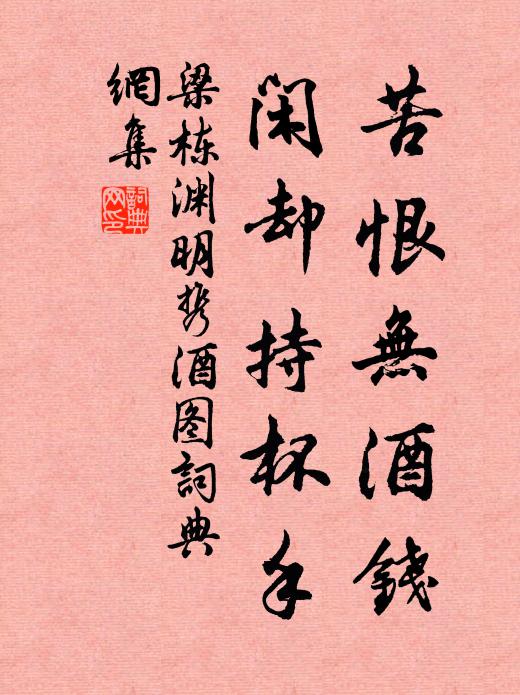 苦恨無酒錢
閑却持杯手
梁栋渊明携酒图詞典
網集
詞典
网印